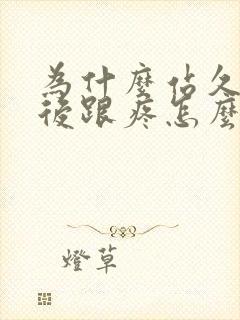 為什麼站久
後跟疼怎麼
燈草